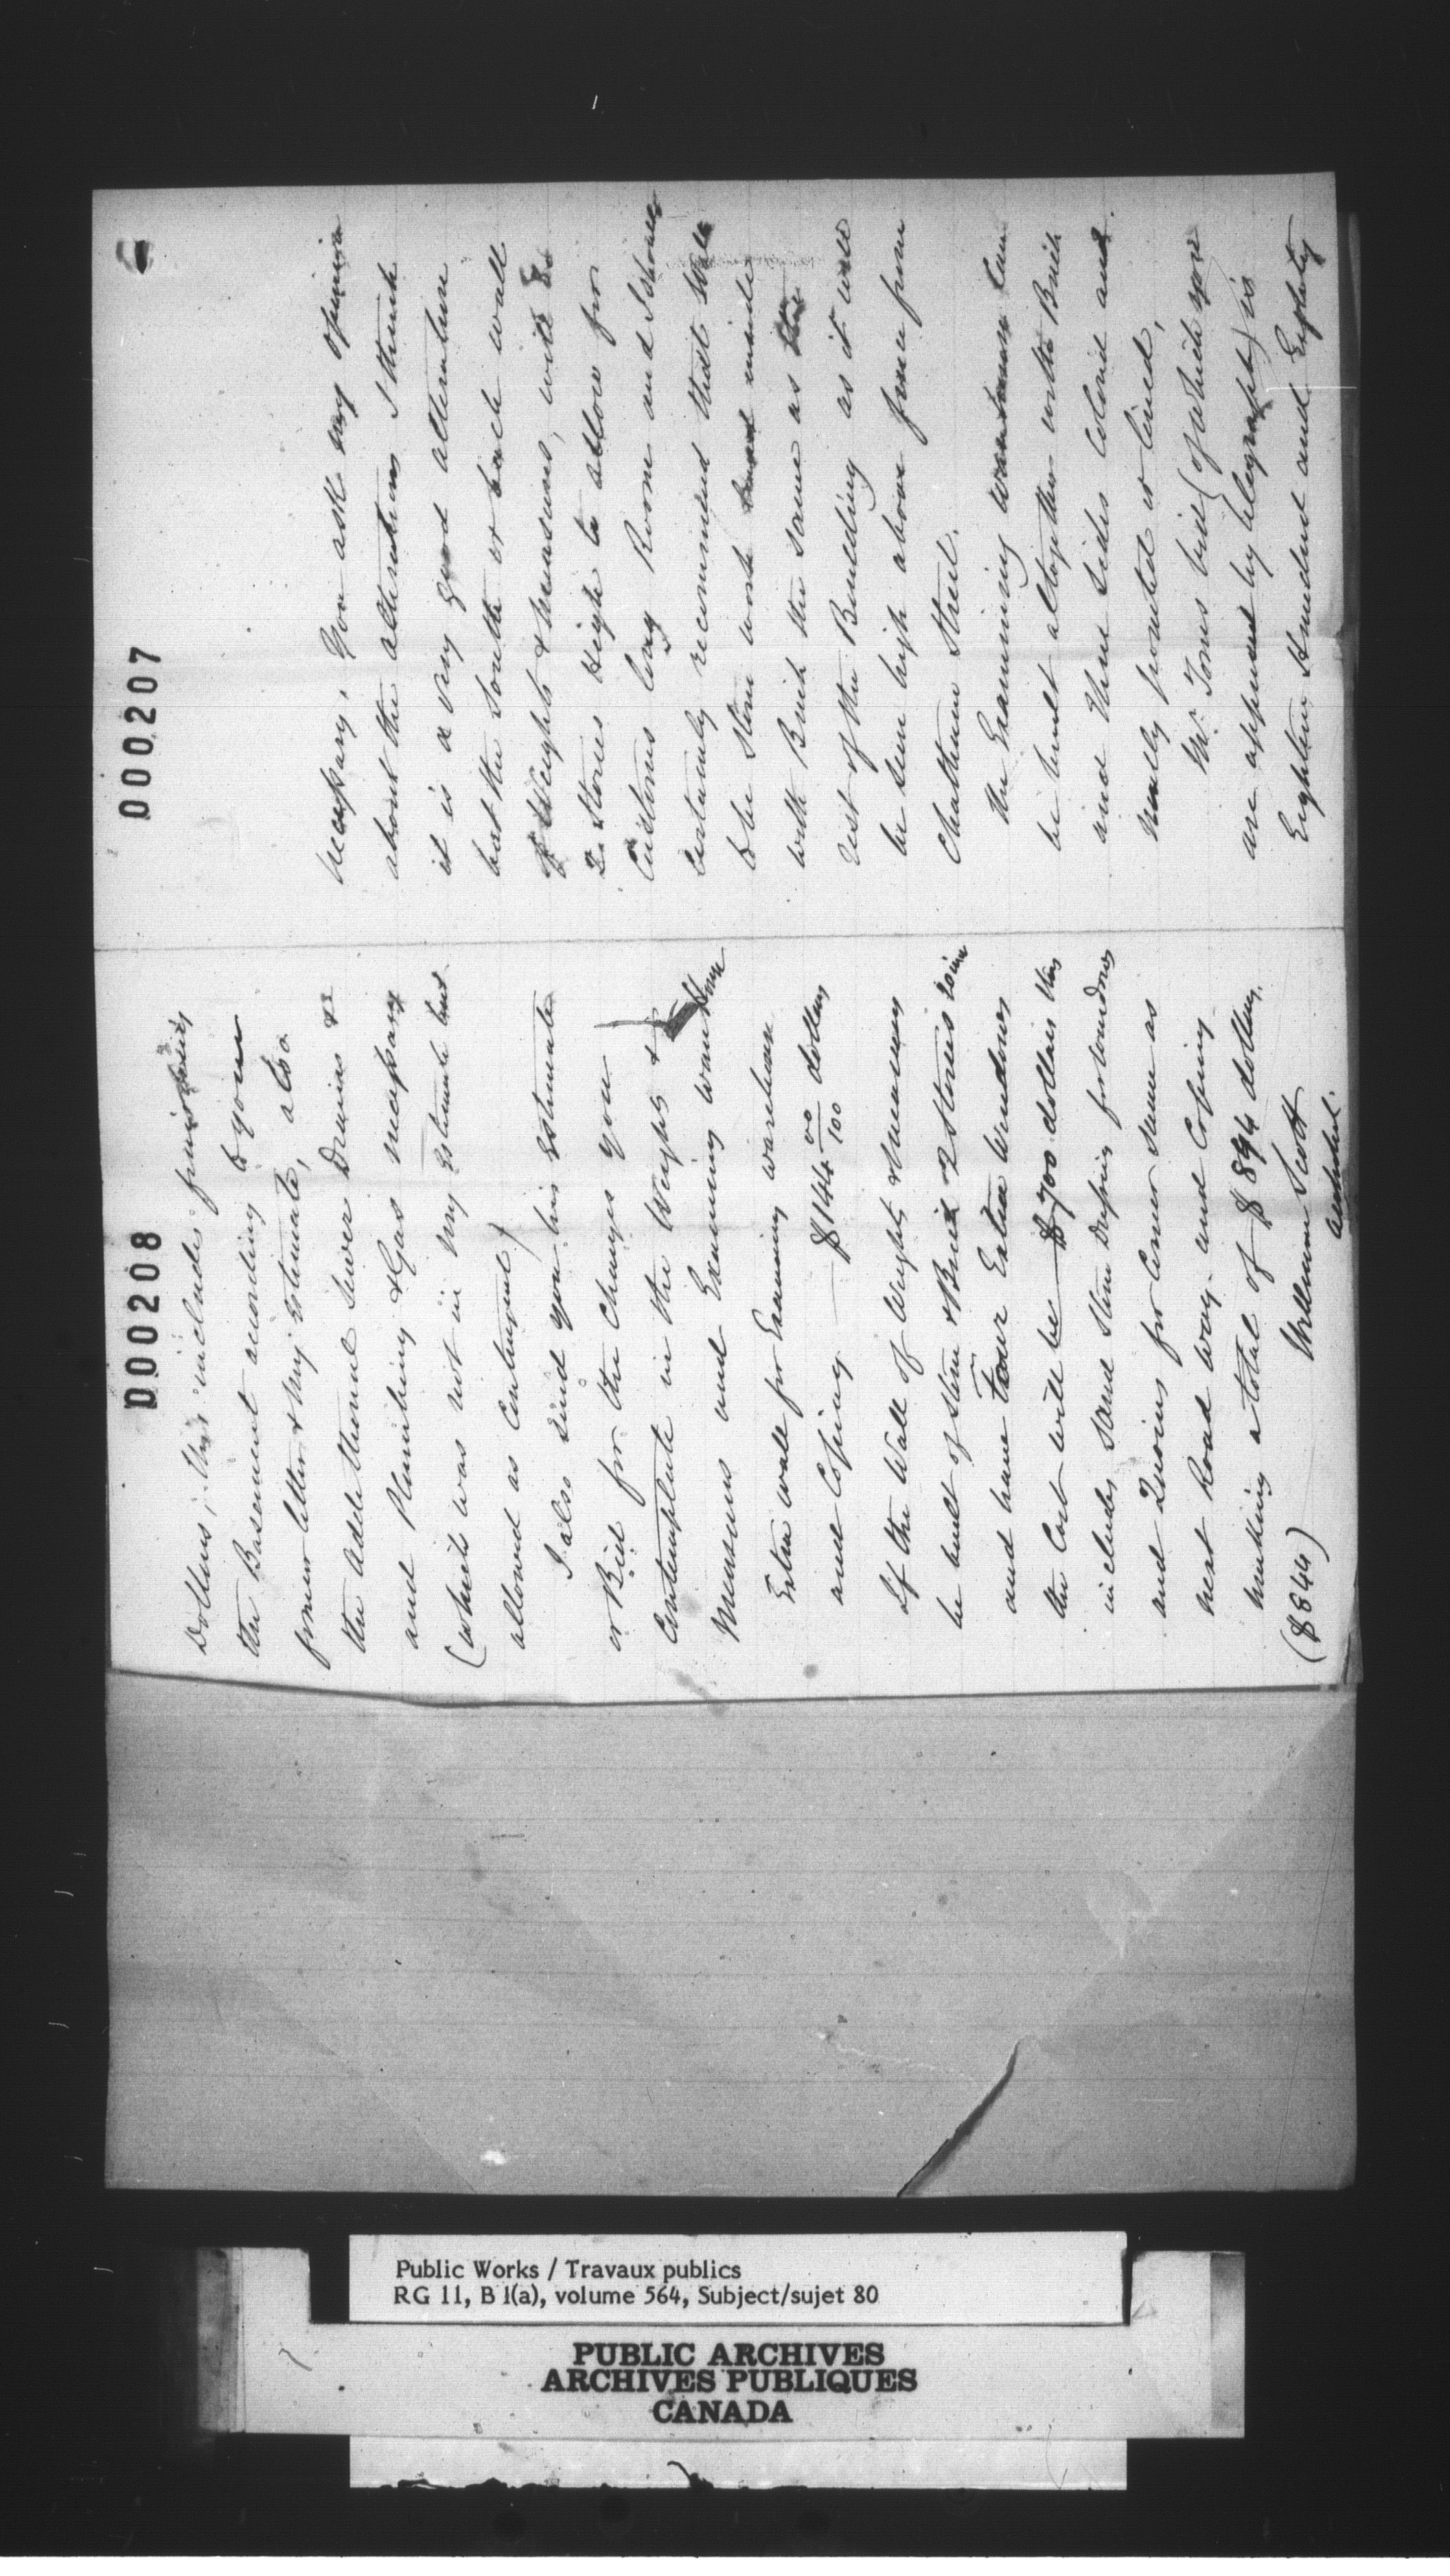 000207
necessary, You ask my opinion
about the alterations I think
it is a very good alteration
but the South or back wall
of Weights & Measures, will be
2 Stories High to allow for
Customs long Room and I should
certainly recommend that wall
to be Stone work and made
with Brick the same as the
rest of the Building as it will
be seen high above fence from
Chatham Street.
The Examining warehouse can
be built altogether with Brick
and there sides colored and
neatly pointed or lined,
Mr. Tones bid (of which you
are apprised by telegraph) is
Eighteen Hundred and Eighty
000208
Dollars, this includes
the Basement according to your
former letter & my estimate, also
the additional Sewer Drains &c
and Plumbing & Gas necessary
(which was not in my estimate but
allowed as Contingent)
I also send you his Estimate
or Bid for the Changes you
Contemplate in the Weights &
Measures and Examining warehouse
Extra wall for Examining warehouse
and Coping $144 00/100 dollars
If the Wall of Weights & Measures
be built of Stone & Brick 2 Stories
and have Four Extra Windows
the Cost will be $700 dollars this
includes Sand Stone Dressing for windows
and Quoins for Corner same as
next Road way and Coping
making a total of $894 dollars.
($844) William Scott
Architect.
Public Works / Travaux publics
RG 11, B 1(a), volume 564, Subject/sujet 80
PUBLIC ARCHIVES
ARCHIVES PUBLIQUES
CANADA